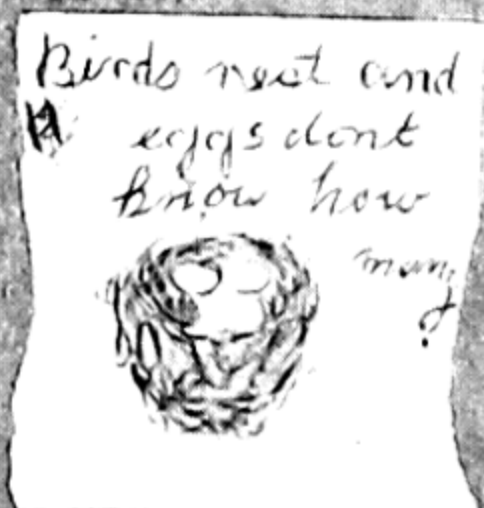 Birds nest and
eggs dont
know how
many
?